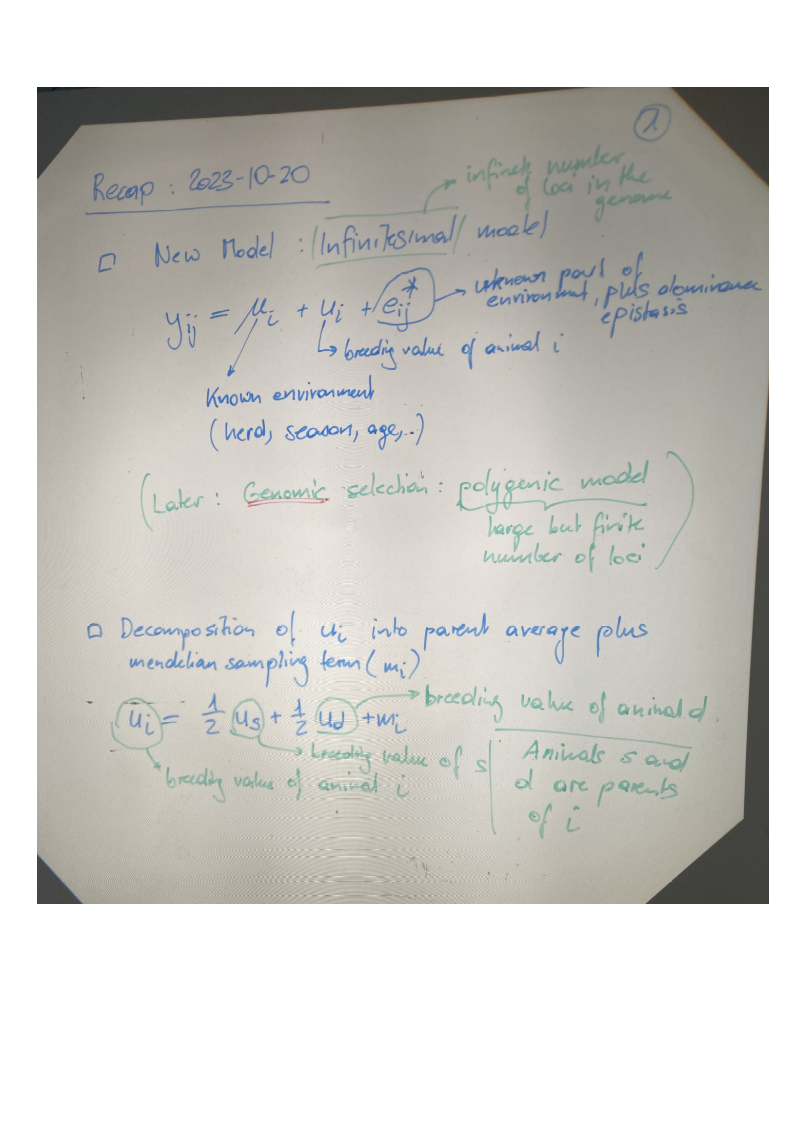 1
Recap : 2023-10-20
infinite number
of loci in the
genome
□ New Model : Infinitesimal model
y_ij = μ_i + u_i + e_ij*
unknown part of
environment, plus dominance
epistasis
breeding value of animal i
Known environment
(herd, season, age,..)
(Later : Genomic selection : polygenic model)
large but finite
number of loci
□ Decomposition of u_i into parent average plus
mendelian sampling term (m_i)
u_i = 1/2 u_s + 1/2 u_d + m_i
breeding value of animal d
breeding value of s
breeding value of animal i
Animals s and
d are parents
of i